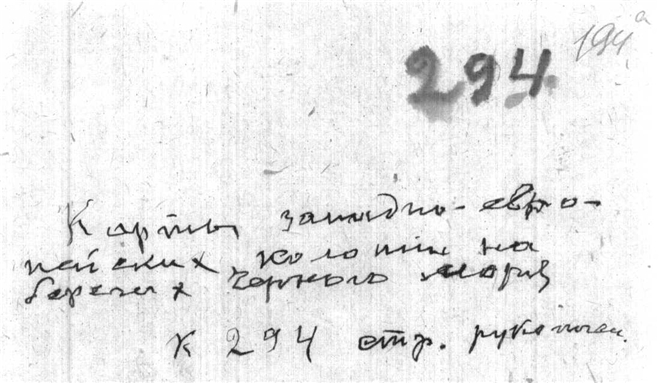 194а
294
Карты западно-евро-
пейских колоний на
берегах Черного моря
К 294 стр. рукописи.